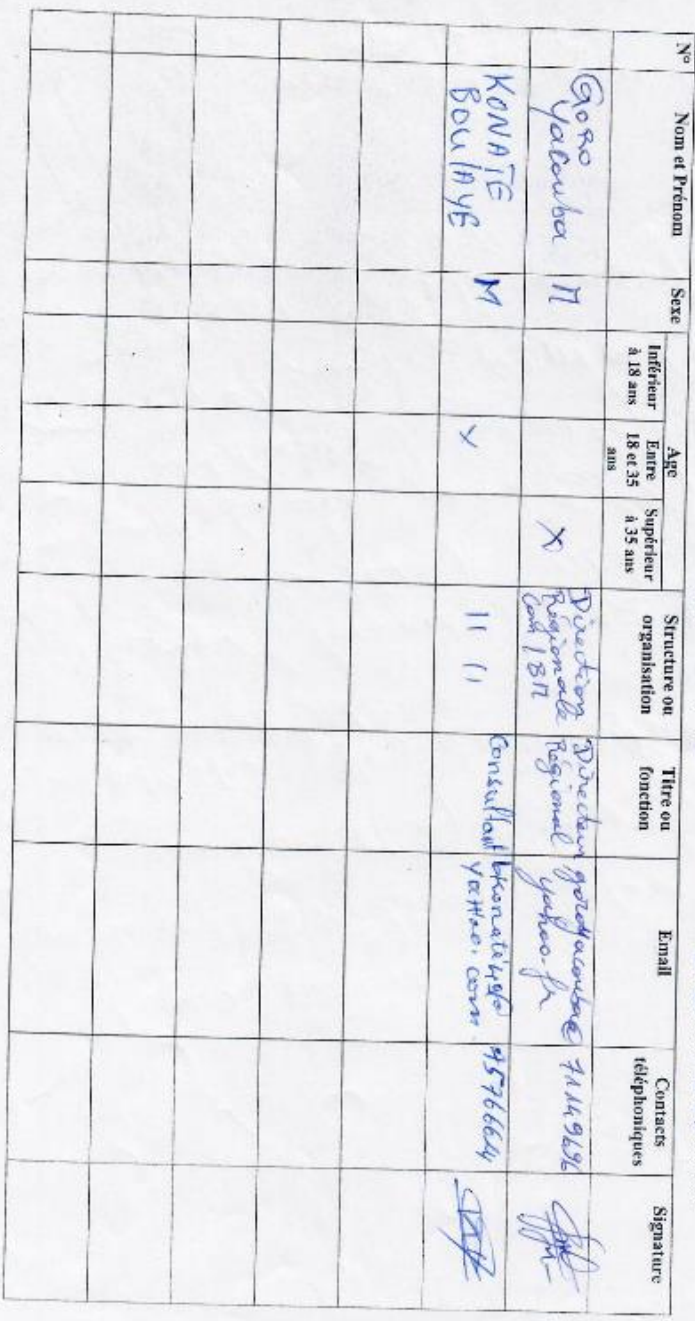 N°
Nom et Prénom
Sexe
Age
Inférieur
à 18 ans
Entre
18 et 35
ans
Supérieur
à 35 ans
Structure ou
organisation
Titre ou
fonction
Email
Contacts
téléphoniques
Signature
Goro
Yacouba
M
X
Direction
Régionale
Directeur
Régional
yahoo.fr
KONATE
BOULAYE
M
X
11 11
Consultant
yahoo.com